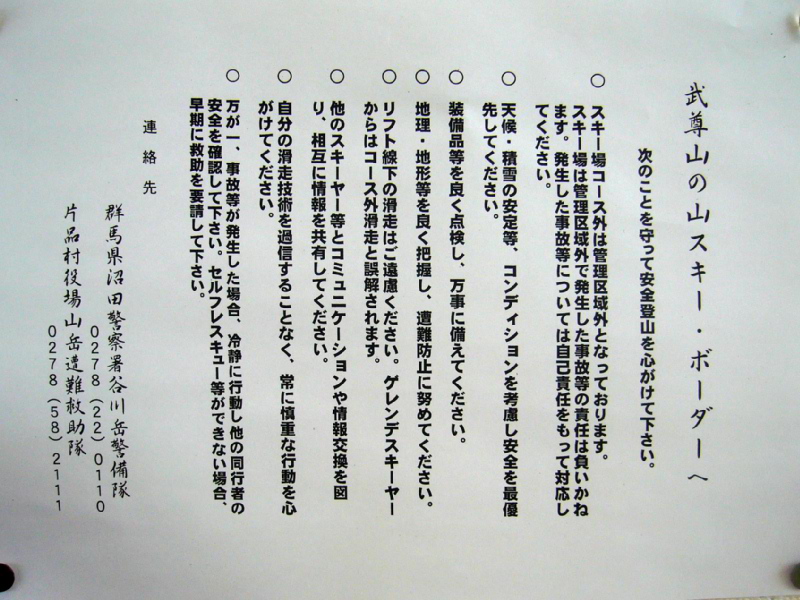 武尊山の山スキー・ボーダーへ
次のことを守って安全登山を心がけて下さい。
○ スキー場コース外は管理区域外となっております。
スキー場は管理区域外で発生した事故等の責任は負いかね
ます。発生した事故等については自己責任をもって対応し
てください。
○ 天候・積雪の安定等、コンディションを考慮し安全を最優
先してください。
○ 装備品等を良く点検し、万事に備えてください。
○ 地理・地形等を良く把握し、遭難防止に努めてください。
○ リフト線下の滑走はご遠慮ください。ゲレンデスキーヤー
からはコース外滑走と誤解されます。
○ 他のスキーヤー等とコミュニケーションや情報交換を図
り、相互に情報を共有してください。
○ 自分の滑走技術を過信することなく、常に慎重な行動を心
がけてください。
○ 万が一、事故等が発生した場合、冷静に行動し他の同行者の
安全を確認して下さい。セルフレスキュー等ができない場合、
早期に救助を要請して下さい。
連絡先
群馬県沼田警察署谷川岳警備隊
0278（22）0110
片品村役場山岳遭難救助隊
0278（58）2111